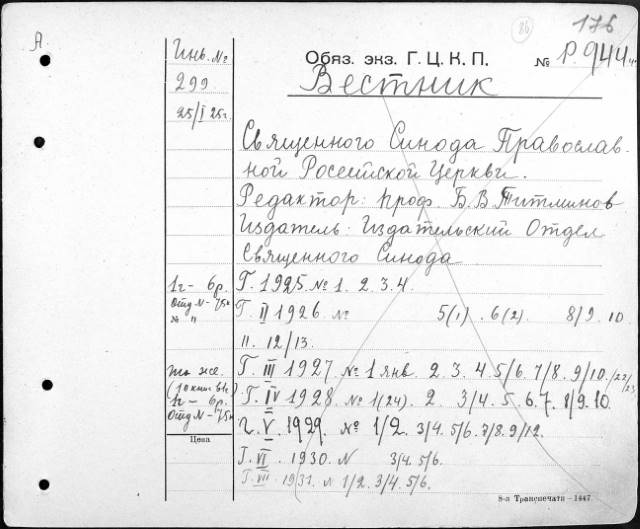 А
86
176
Инв. №
299
25/I 25г.
Обяз. экз. Г. Ц. К. П.
№ Р. 944
Вестник
Священного Синода Православ-
ной Российской Церкви.
Редактор: проф. Б. В. Титлинов
Издатель: Издательский Отдел
Священного Синода
1г- 6р. Г. 1925 № 1. 2. 3. 4.
Отд № - 75к Г. II 1926. № 5(1). 6(2). 8/9. 10
№ "
11. 12/13.
то же. Г. III 1927 № 1 янв. 2. 3. 4. 5/6. 7/8. 9/10. /22/23
1г - 6р. Г. IV 1928 № 1(24). 2. 3/4. 5. 6. 7. 8/9. 10.
Отд № - 75к
Г. V. 1929. № 1/2. 3/4. 5/6. 7/8. 9/12.
Цена
Г. VI. 1930. N 3/4. 5/6.
Г. VII. 1931. N 1/2. 3/4. 5/6.
8-я Транспечати - 1447.